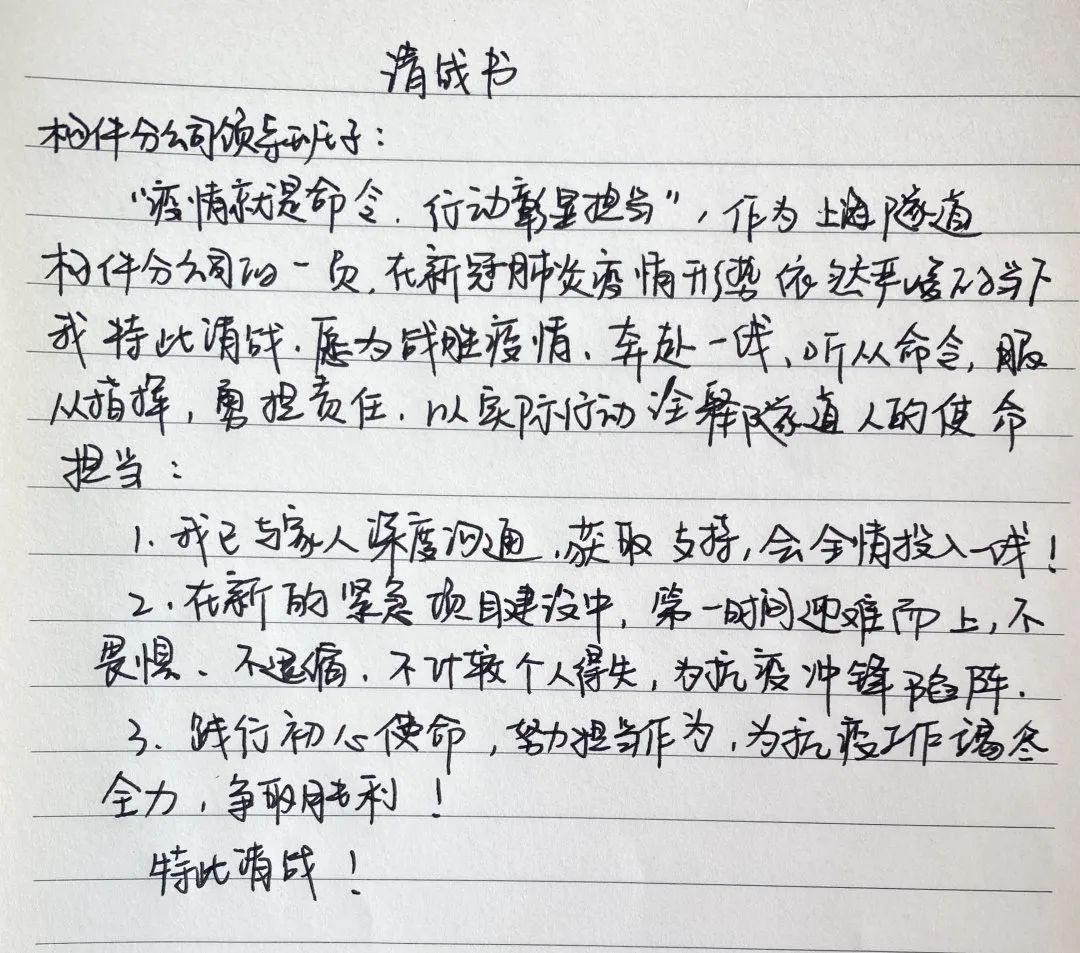 请战书
构件分公司领导班子：
“疫情就是命令，行动彰显担当”，作为上海隧道
构件分公司的一员，在新冠肺炎疫情形势依然严峻的当下
我特此请战，愿为战胜疫情、奔赴一线、听从命令，服
从指挥，勇担责任，以实际行动诠释隧道人的使命
担当：
1、我已与家人深度沟通，获取支持，会全情投入一线！
2、在新的紧急项目建设中，第一时间迎难而上，不
畏惧、不退缩、不计较个人得失，为抗疫冲锋陷阵.
3、践行初心使命，努力担当作为，为抗疫工作竭尽
全力，争取胜利！
特此请战！